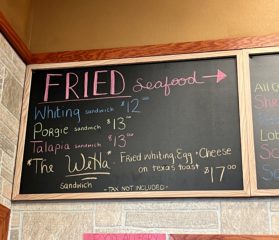 FRIED Seafood →
Whiting sandwich $12.00
Porgie sandwich $13.00
Talapia sandwich $13.00
*The WeNa* Fried Whiting, Egg + Cheese
on texas toast $17.00
Sandwich
-TAX NOT INCLUDED-
All O